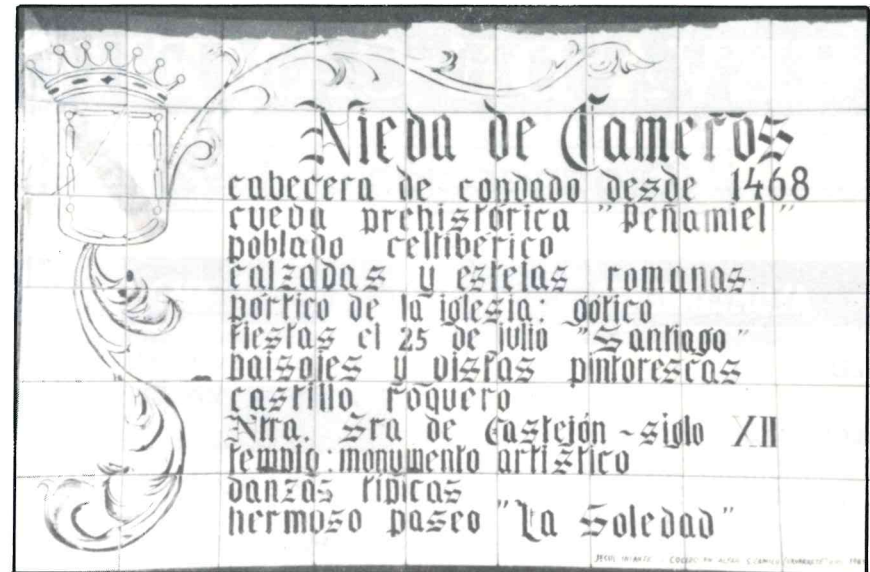 Nieva de Cameros
cabecera de condado desde 1468
cueva prehistórica "Peñamiel"
poblado celtibérico
calzadas y estelas romanas
pórtico de la iglesia: gótico
fiestas el 25 de julio "Santiago"
paisajes y vistas pintorescas
castillo roquero
Ntra. Sra de Castejón - siglo XII
templo: monumento artístico
danzas típicas
hermoso paseo "La Soledad"